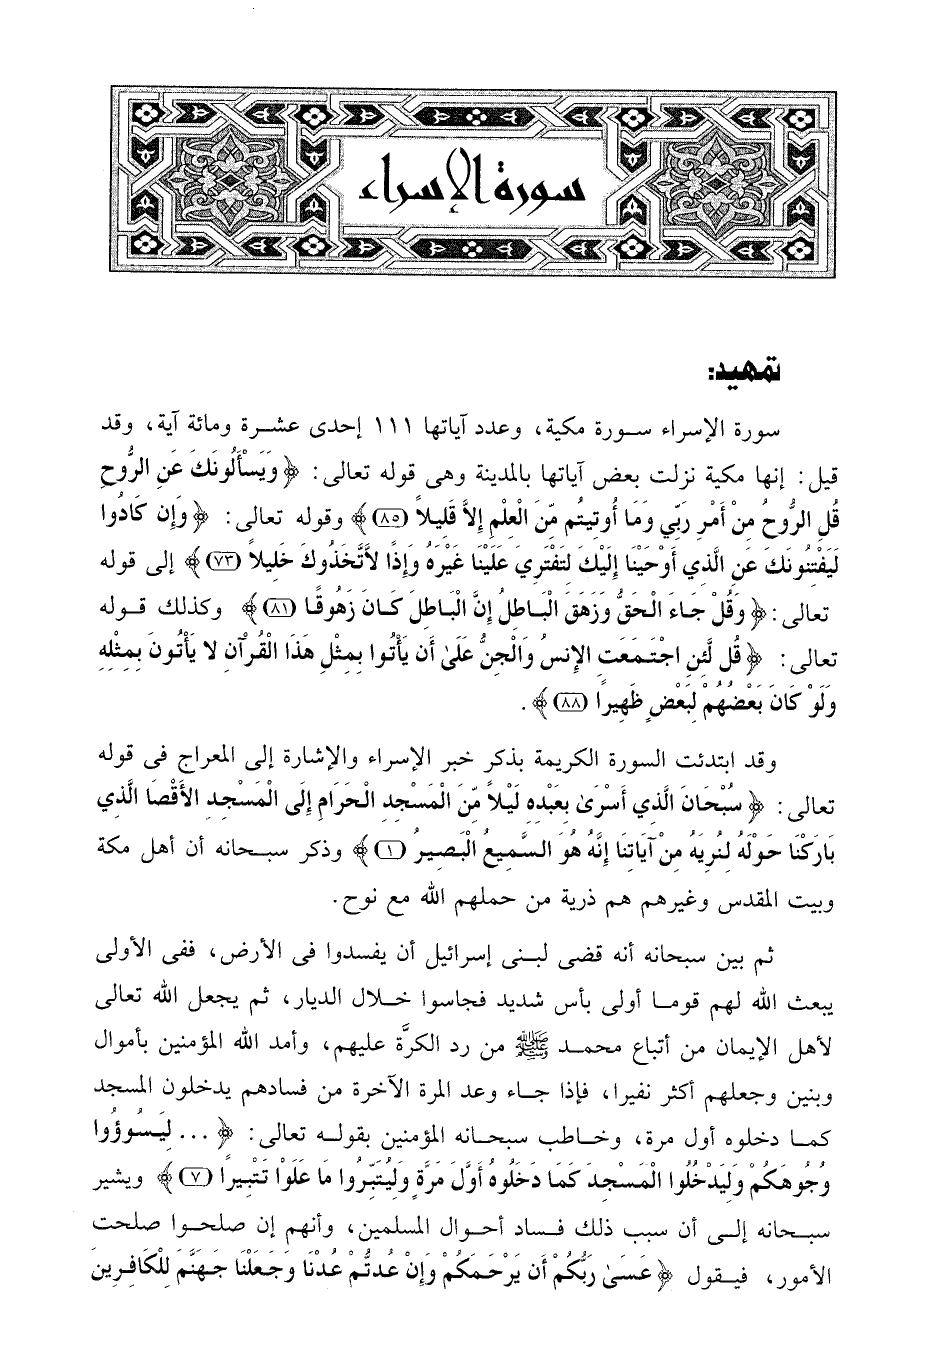 سورة الإسراء
تمهيد:
سورة الإسراء سورة مكية، وعدد آياتها ١١١ إحدى عشرة ومائة آية، وقد
قيل: إنها مكية نزلت بعض آياتها بالمدينة وهى قوله تعالى: ﴿ وَيَسْأَلُونَكَ عَنِ الرُّوحِ
قُلِ الرُّوحُ مِنْ أَمْرِ رَبِّي وَمَا أُوتِيتُم مِّنَ الْعِلْمِ إِلاَّ قَلِيلاً (٨٥)﴾ وقوله تعالى: ﴿ وَإِن كَادُوا
لَيَفْتِنُونَكَ عَنِ الَّذِي أَوْحَيْنَا إِلَيْكَ لِتَفْتَرِيَ عَلَيْنَا غَيْرَهُ وَإِذًا لاَّتَّخَذُوكَ خَلِيلاً (٧٣)﴾ إلى قوله
تعالى: ﴿ وَقُلْ جَاءَ الْحَقُّ وَزَهَقَ الْبَاطِلُ إِنَّ الْبَاطِلَ كَانَ زَهُوقًا (٨١)﴾ وكذلك قوله
تعالى: ﴿ قُل لَّئِنِ اجْتَمَعَتِ الإِنسُ وَالْجِنُّ عَلَىٰ أَن يَأْتُوا بِمِثْلِ هَذَا الْقُرْآنِ لا يَأْتُونَ بِمِثْلِهِ
وَلَوْ كَانَ بَعْضُهُمْ لِبَعْضٍ ظَهِيرًا (٨٨)﴾.
وقد ابتدئت السورة الكريمة بذكر خبر الإسراء والإشارة إلى المعراج فى قوله
تعالى: ﴿ سُبْحَانَ الَّذِي أَسْرَىٰ بِعَبْدِهِ لَيْلاً مِّنَ الْمَسْجِدِ الْحَرَامِ إِلَى الْمَسْجِدِ الأَقْصَا الَّذِي
بَارَكْنَا حَوْلَهُ لِنُرِيَهُ مِنْ آيَاتِنَا إِنَّهُ هُوَ السَّمِيعُ الْبَصِيرُ (١)﴾ وذكر سبحانه أن أهل مكة
وبيت المقدس وغيرهم هم ذرية من حملهم الله مع نوح.
ثم بين سبحانه أنه قضى لبنى إسرائيل أن يفسدوا فى الأرض، ففى الأولى
يبعث الله لهم قوما أولى بأس شديد فجاسوا خلال الديار، ثم يجعل الله تعالى
لأهل الإيمان من أتباع محمد ﷺ من رد الكرَّة عليهم، وأمد الله المؤمنين بأموال
وبنين وجعلهم أكثر نفيرا، فإذا جاء وعد المرة الآخرة من فسادهم يدخلون المسجد
كما دخلوه أول مرة، وخاطب سبحانه المؤمنين بقوله تعالى: ﴿ ... لِيَسُوؤُوا
وُجُوهَكُمْ وَلِيَدْخُلُوا الْمَسْجِدَ كَمَا دَخَلُوهُ أَوَّلَ مَرَّةٍ وَلِيُتَبِّرُوا مَا عَلَوْا تَتْبِيرًا (٧)﴾ ويشير
سبحانه إلى أن سبب ذلك فساد أحوال المسلمين، وأنهم إن صلحوا صلحت
الأمور، فيقول ﴿ عَسَىٰ رَبُّكُمْ أَن يَرْحَمَكُمْ وَإِنْ عُدتُّمْ عُدْنَا وَجَعَلْنَا جَهَنَّمَ لِلْكَافِرِينَ